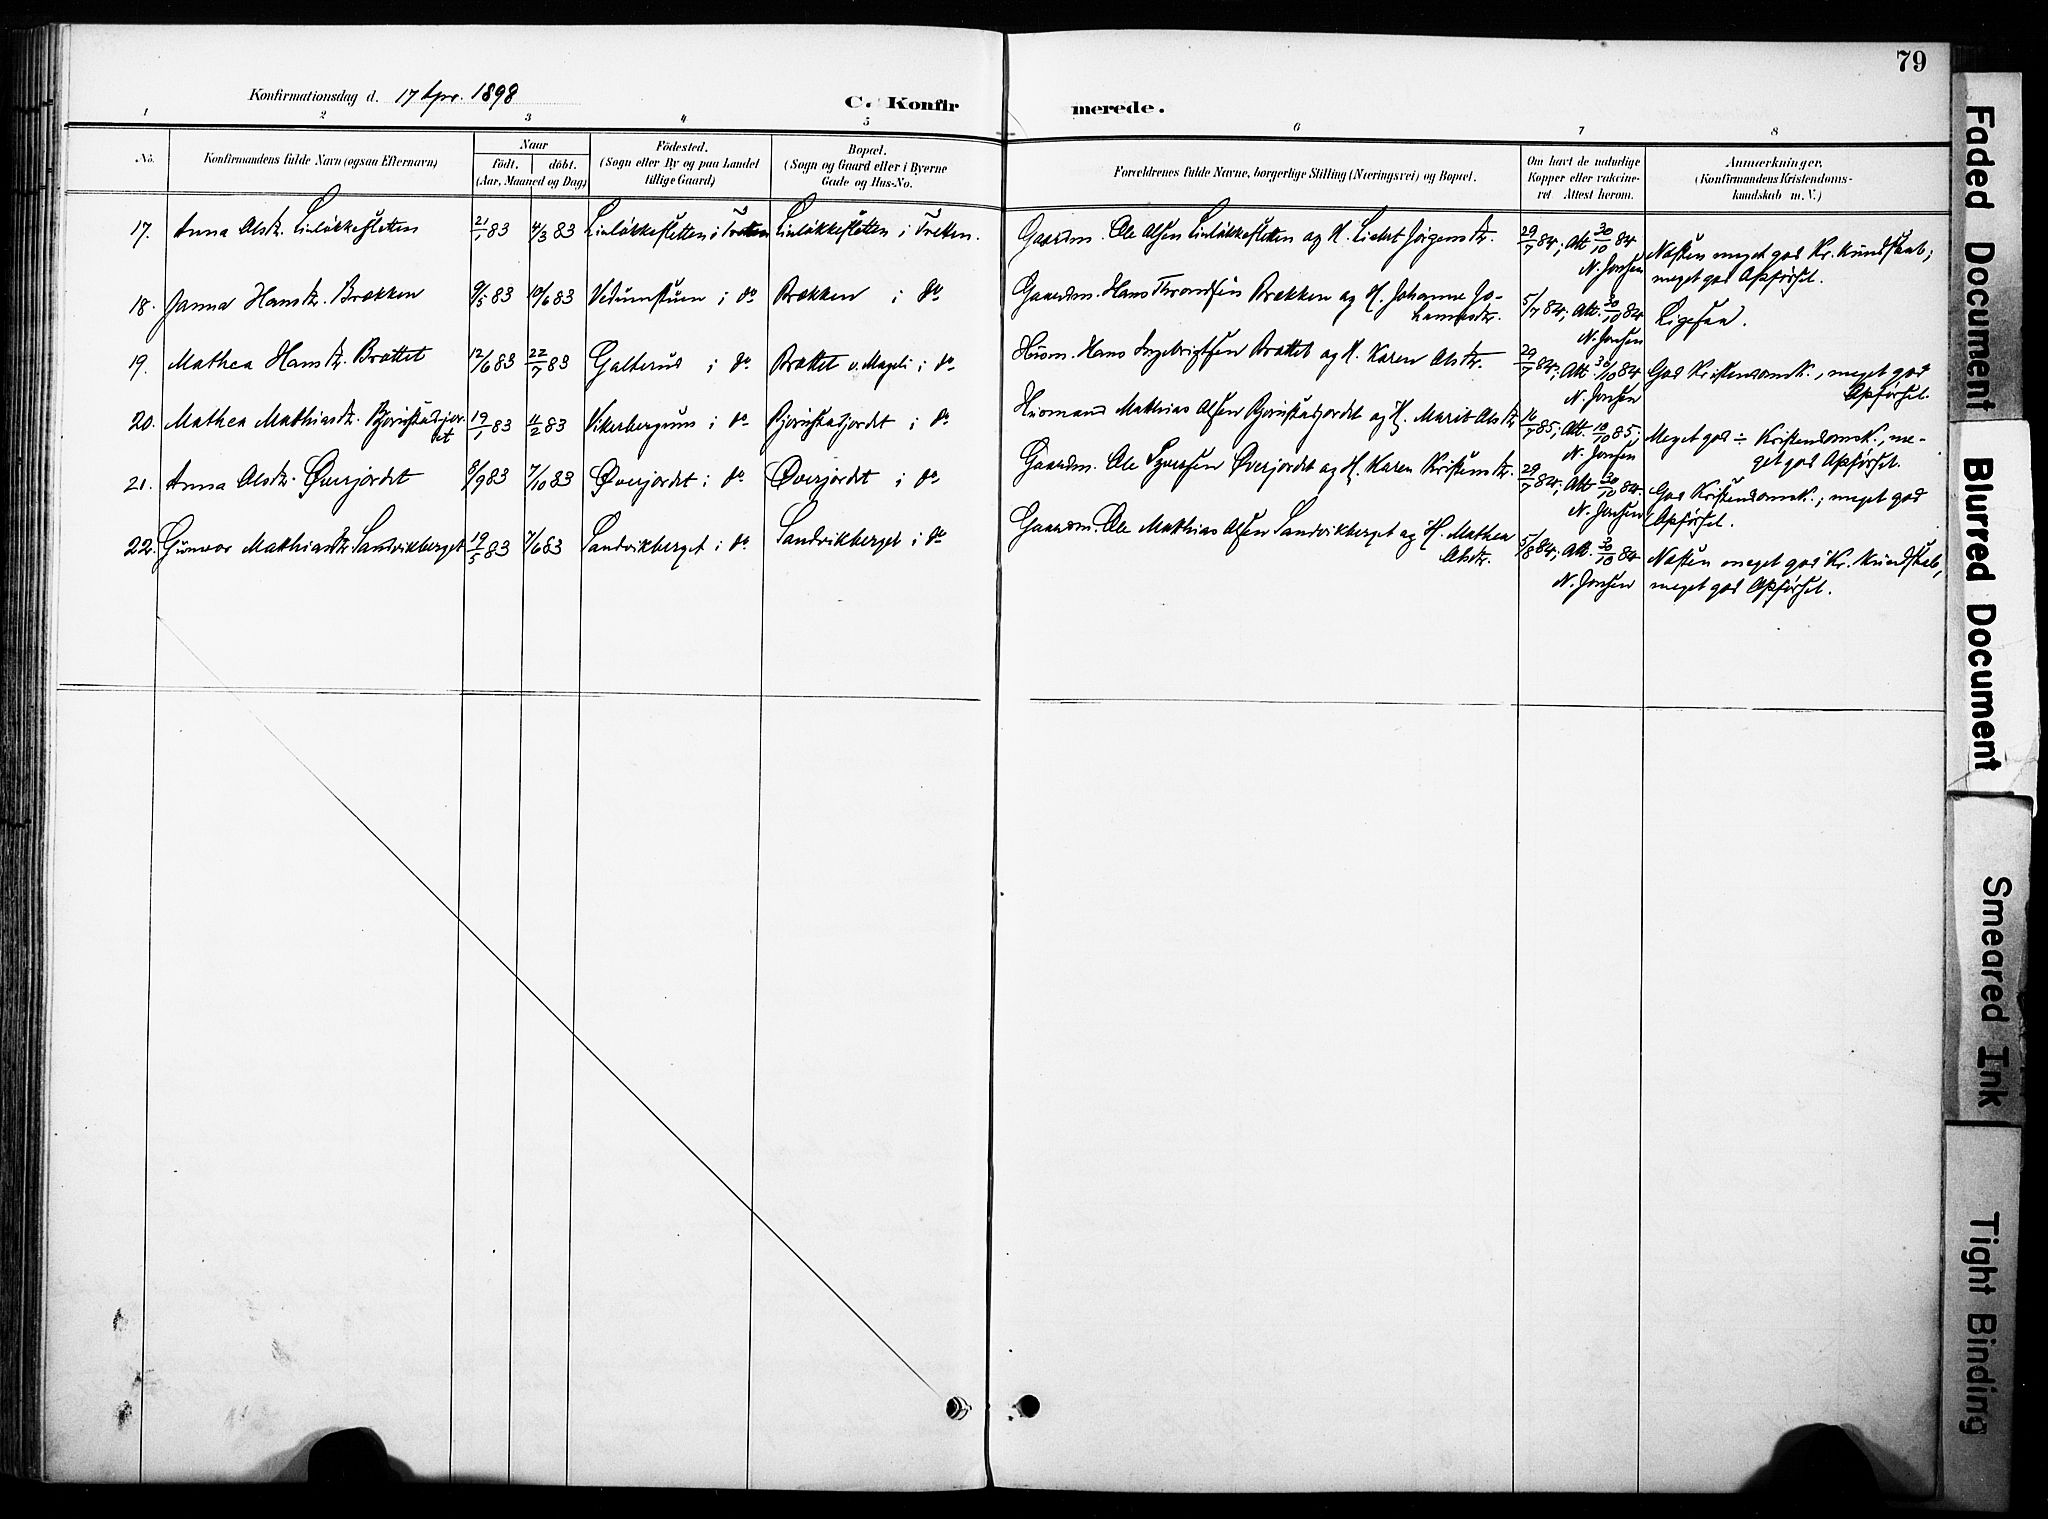 79
Konfirmationsdag d. 17 Apr. 1898
C. Konfir merede.
1 2 3 4 5 6 7 8
No. Konfirmandens fulde Navn (ogsaa Efternavn)
Naar
födt. döbt.
(Aar, Maaned og Dag)
Födested.
(Sogn eller By og paa Landet
tillige Gaard)
Bopæl.
(Sogn og Gaard eller i Byerne
Gade og Hus-No.
Forældrenes fulde Navne, borgerlige Stilling (Næringsvei) og Bopæl.
Om havt de naturlige
Kopper eller vaccine-
ret Attest herom.
Anmærkninger.
(Konfirmandens Kristendoms-
kundskab m. V.)
17. Anna Olsdtr. Linløkkesletten 21/1 83 4/3 83 Linløkkesletten i Tretten Linløkkesletten i Tretten. Gaardm. Ole Olsen Linløkkesletten og H. Jörgensdtr. 29/7 84; Att 30/10 84
N. Jonsen
Næsten meget god Kr. kundskab;
meget god Opførsel.
18. Janna Hansdtr. Brækken 9/5 83 10/6 83 i do Brækken i do Gaardm. Hans Throndsen Brækken og H. Johanne Jo-
hannesdtr.
5/7 84; Att. 30/10 84
N. Jonsen
Ligesaa.
19. Mathea Hansdtr. Bråttet 12/6 83 22/7 83 Galterud i do Brattet v. Mageli i do Husm. Hans Ingebrigtsen Brattet og H. Karen Olsdtr. 29/7 84; Att. 30/10 84
N. Jonsen
God Kristendomsk., meget god
Opførsel.
20. Mathea Mathiasdtr. Bjørnstadjor-
det
19/1 83 11/2 83 Vikerbergum i do Bjørnstadjordet i do Husmand Mathias Olsen Bjørnstadjordet og H. Marit Olsdtr 16/7 85; Att. 10/10 85;
N. Jonsen
Meget god ÷ Kristendomsk., me-
get god Opførsel.
21. Anna Olsdtr. Øverjordet 8/9 83 7/10 83 Øverjordet i do Øverjordet i do Gaardm. Ole Syversen Øverjordet og H. Karen Kristensdtr. 29/7 84; Att 30/10 84.
N. Jonsen
God Kristendomsk.; meget god
Opførsel.
22. Gunvor Mathiasdtr. Sandvikberget 19/5 83 7/6 83 Sandvikberget i do Sandvikberget i do Gaardm. Ole Mathias Olsen Sandvikberget og H. Mathea
Olsdtr.
5/8 84; Att. 30/10 84
N. Jonsen
Næsten meget god Kr. kundskab,
meget god Opførsel.
Faded Document
Blurred Document
Smeared Ink
Tight Binding